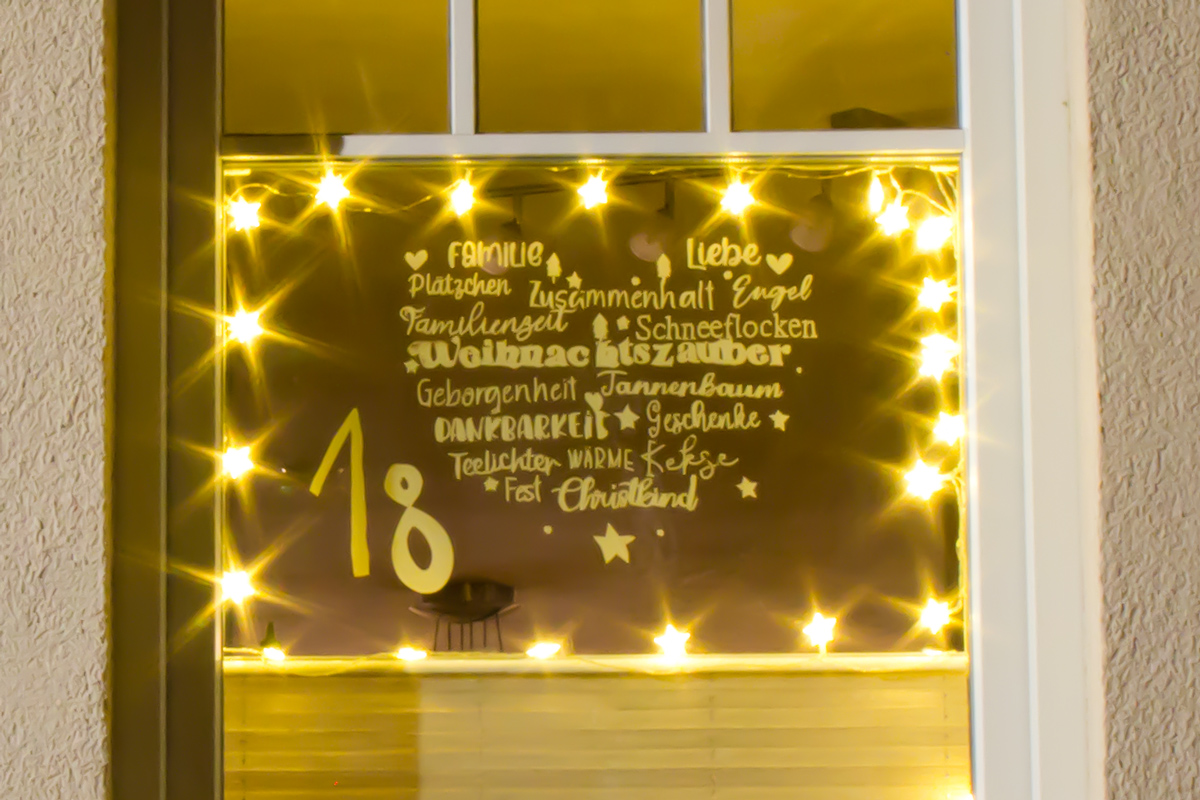 Familie Liebe
Plätzchen Zusammenhalt Engel
Familienzeit Schneeflocken
Weihnachtszauber
Geborgenheit Tannenbaum
DANKBARKEIT Geschenke
Teelichter WÄRME Kekse
Fest Christkind
18